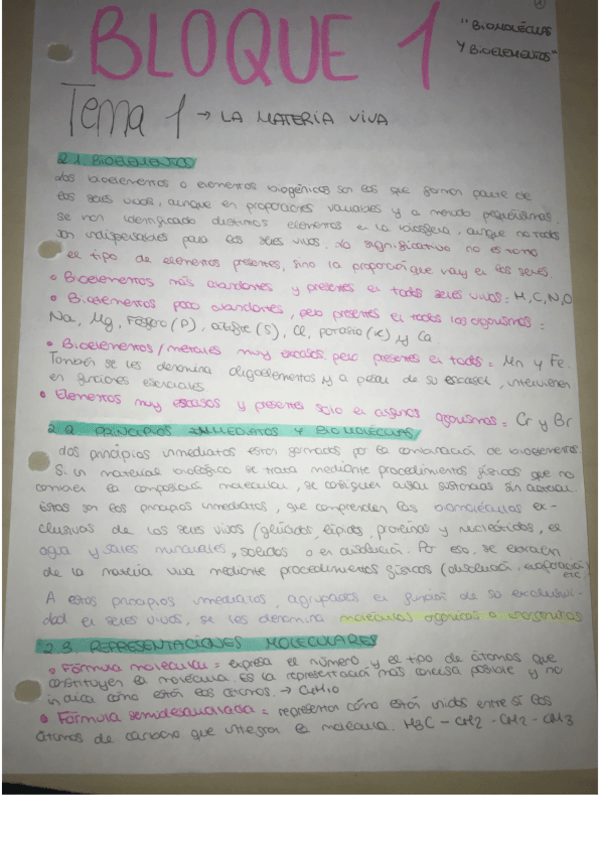 BLOQUE 1
"BIOMOLÉCULAS
Y BIOELEMENTOS"
Tema 1 → LA MATERIA VIVA
2.1 BIOELEMENTOS
Los bioelementos o elementos biogénicos son los que forman parte de
los seres vivos, aunque en proporciones variables y a menudo pequeñísimas.
se han identificado distintos elementos en la biosfera, aunque no todos
son indispensables para los seres vivos. Lo significativo no es tanto
el tipo de elementos presentes, sino la proporción que hay en los seres.
• Bioelementos más abundantes y presentes en todos seres vivos: H, C, N, O
• Bioelementos poco abundantes, pero presentes en todos los organismos:
Na, Mg, Fósforo (P), azufre (S), Cl, potasio (K) y Ca
• Bioelementos/metales muy escasos pero presentes en todos = Mn y Fe.
También se les denomina oligoelementos y a pesar de su escasez, intervienen
en funciones esenciales
• Elementos muy escasos y presentes solo en algunos organismos = Cr y Br
2.2 PRINCIPIOS INMEDIATOS Y BIOMOLÉCULAS
Los principios inmediatos están formados por la combinación de bioelementos.
Si un material biológico se trata mediante procedimientos físicos que no
cambien la composición molecular, se consiguen aislar sustancias sin alterar.
Estos son los principios inmediatos, que comprenden las biomoléculas ex-
clusivas de los seres vivos (glúcidos, lípidos, proteínas y nucleótidos, el
agua y sales minerales, sólidas o en disolución. Por eso, se extraen
de la materia viva mediante procedimientos físicos (disolución, evaporación)
etc
A estos principios inmediatos, agrupados en función de su exclusivi-
dad en seres vivos, se les denomina moléculas orgánicas o inorgánicas
2.3 REPRESENTACIONES MOLECULARES
• Fórmula molecular = expresa el número y el tipo de átomos que
constituyen la molécula. Es la representación más concisa posible y no
indica cómo están los átomos. → C4H10
• Fórmula semidesarrollada = representan cómo están unidos entre sí los
átomos de carbono que integran la molécula. H3C - CH2 - CH2 - CH3